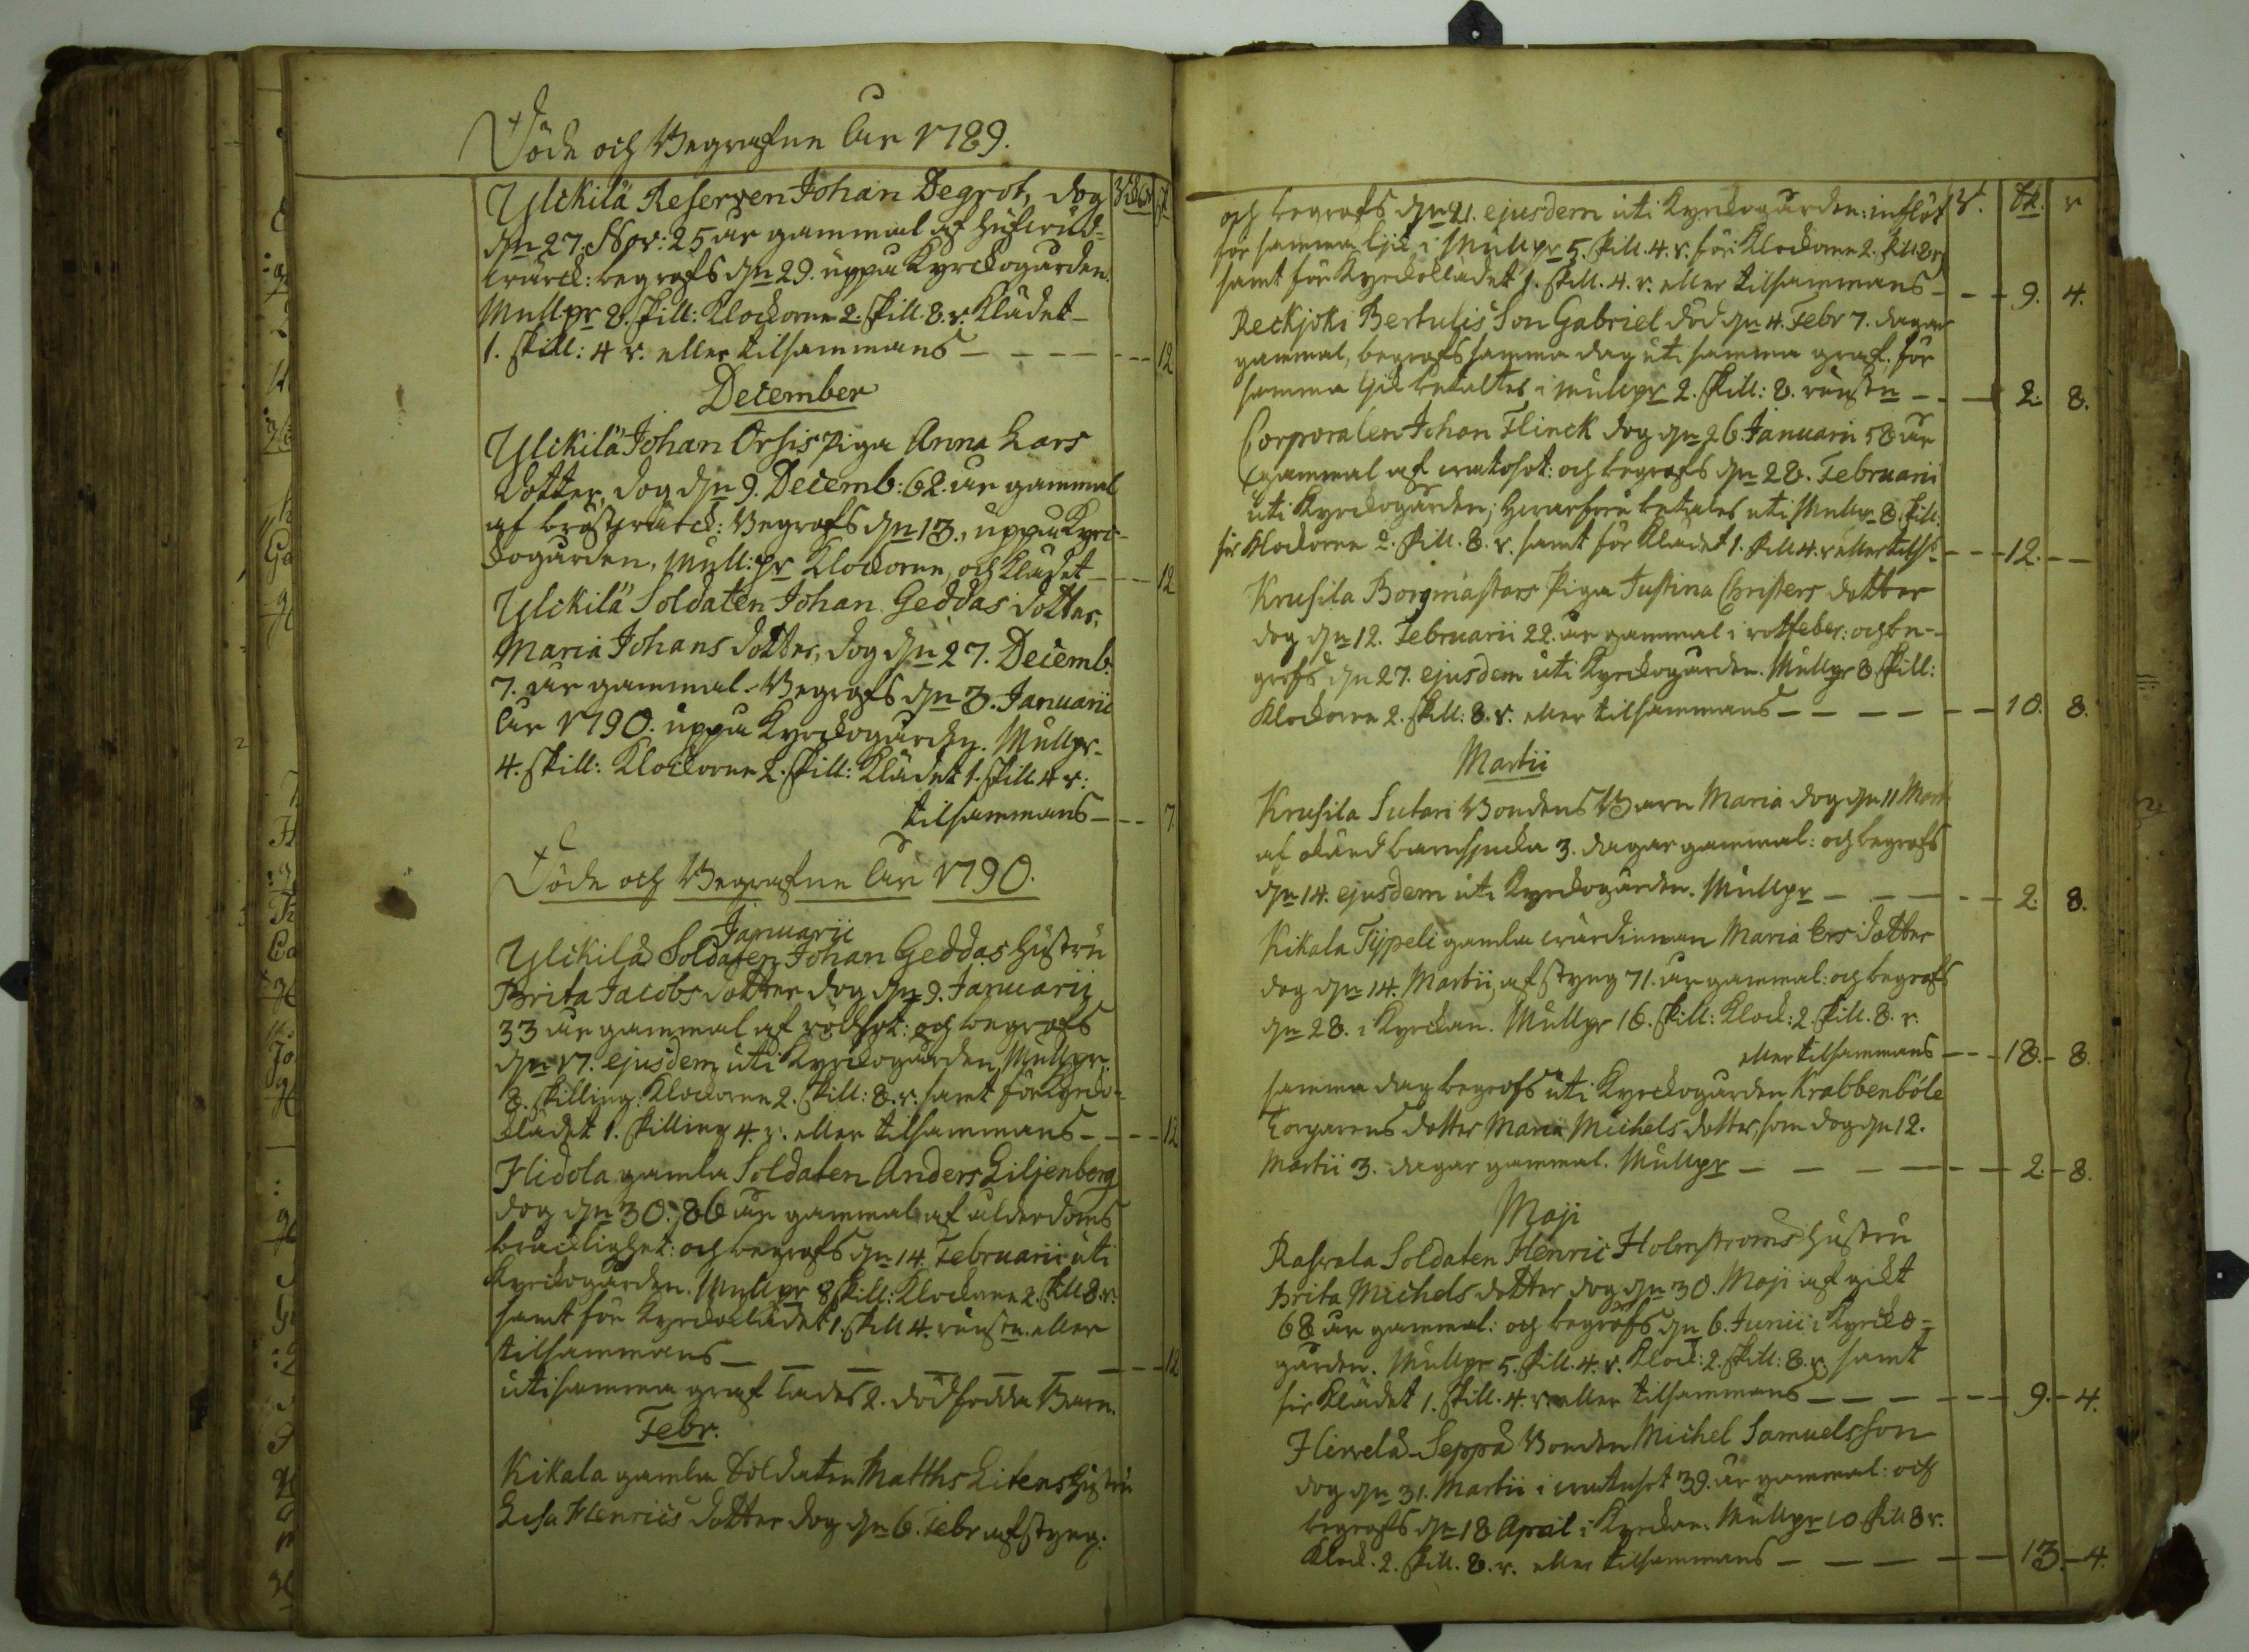 Döde och Begrafne År 1789.
Ylikilä Reserven Johan Degrot, dog
dn 27. Nov: 25 år gammal af hufvud-
wärck: begrofs dn 29. uppå Kyrckogården.
Mullpr 8. skill: Klockorne 2. skill. 8. r. Klädet
1. skill: 4 r. eller tilsammans - - - - 12
December
Ylikilä Johan Orsis Piga Anna Lars
dotter, dog dn 9. Decemb: 62. år gammal
af bröstwärck: Begrofs dn 13., uppå Kyrc-
kogården, Mull:pr Klockorne, och Klädet - - 12
Ylikilä Soldaten Johan Geddas dotter,
Maria Johans dotter, dog dn 27. Decemb.
7. år gammal. Begrofs dn 3. Januarii
År 1790. uppå Kyrckogården. Mullpr.
4. skill: Klockorne 2. skill: Klädet 1. skill. 4 r:
tilsammans - - - 7.
Döde och Begrafne År 1790.
Januarii
Ylikilä Soldaten Johan Geddas Hustru
Brita Jacobs dotter dog dn 9. Januarii
33 år gammal af rödsot: och begrofs
dn 17. ejusdem uti Kyrckogården Mullpr.
8. skilling. Klockorne 2. skill: 8. r. samt för Kyrcko-
klädet 1. skilling 4. r. eller tilsammans - - - 12
Flidola gamla Soldaten Anders Liljenberg
dog dn 30. 86 år gammal af ålderdoms
bräcklighet: och begrofs dn 14. Februarii uti
Kyrckogården. Mullpr 8 skill: Klockorne 2. skill 8. r.
samt för Kyrckoklädet 1. skill 4. runstn. eller
tilsammans - - - - - - 12
uti samma graf lades 2. dödfödda Barn.
Febr.
Kikala gamla Soldaten Matths Litens Hustru
Lisa Henrics dotter dog dn 6. Febr af styng:
och begrofs dn 21. ejusdem uti Kyrckogården: inflöt R. sk. r
för samma lijk i Mullpr 5. skill. 4. r. för Klockorne 2. skill 8 r
samt för Kyrckoklädet 1. skill. 4. r. eller tilsammans - - - 9. 4.
Reckjoki Bertulis Son Gabriel död dn 4. Febr 7. dagar
gammal, begrofs samma dag uti samma graf. för
samma lijk betaltes i Mullpr 2. skill: 8. runstn - - - 2. 8.
Corporalen Johan Flinck dog dn 26 Januarii 58 år
gammal af watusot: och begrofs dn 28. Februarii
uti Kyrckogården; hwarföre betales uti Mullpr 8 skill.
för Klockorne 2. skill. 8. r. samt för Klädet 1. skill 4. r eller tilhs - - - 12. - -
Krusila Borgmästars Piga Justina Christers dotter
dog dn 12. Februarii 22. år gammal i rötfeber: och be-
grofs dn 27. ejusdem uti Kyrckogården. Mullpr 8 skill:
Klockorne 2. skill: 8. r. eller tilsammans - - - - - 10. 8.
Martii
Krusila Sutari Bondens Barn Maria dog dn 11 Mart
af okänd barnsjuka 3. dagar gammal: och begrofs
dn 14. ejusdem uti Kyrckogården. Mullpr - - - - 2. 8.
Kikala Tijpeli gamla wärdinnan Maria Ers dotter
dog dn 14. Martii, af styng 71. år gammal: och begrofs
dn 28. i Kyrckan. Mullpr 16. skill: Klock: 2 skill. 8. r:
eller tilsammans - - - 18. - 8.
samma dag begrofs uti Kyrckogården Krabbenböle
Torparens dotter Maria Michels dotter, som dog dn 12.
Martii 3. dagar gammal. Mullpr - - - - - 2. - 8.
Maji
Raswala Soldaten Henric Holmstroms Hustru
Brita Michels dotter dog dn 30. Maji af gikt
68 år gammal: och begrofs dn 6. Junii i Kyrcko-
gården. Mullpr 5. skill. 4. r. Klock: 2. skill: 8. r. samt
för Klädet 1. skill. 4. r eller tilsammans - - - - - 9. - 4.
Hirvelä Seppä Bonden Michel Samuelsson
dog dn 31. Martii i watusot 39. år gammal: och
begrofs dn 18 April i Kyrckan: Mullpr 10. skill 8 r.
Klock. 2. skill. 8. r. eller tilsammans - - - - - 13. - 4.